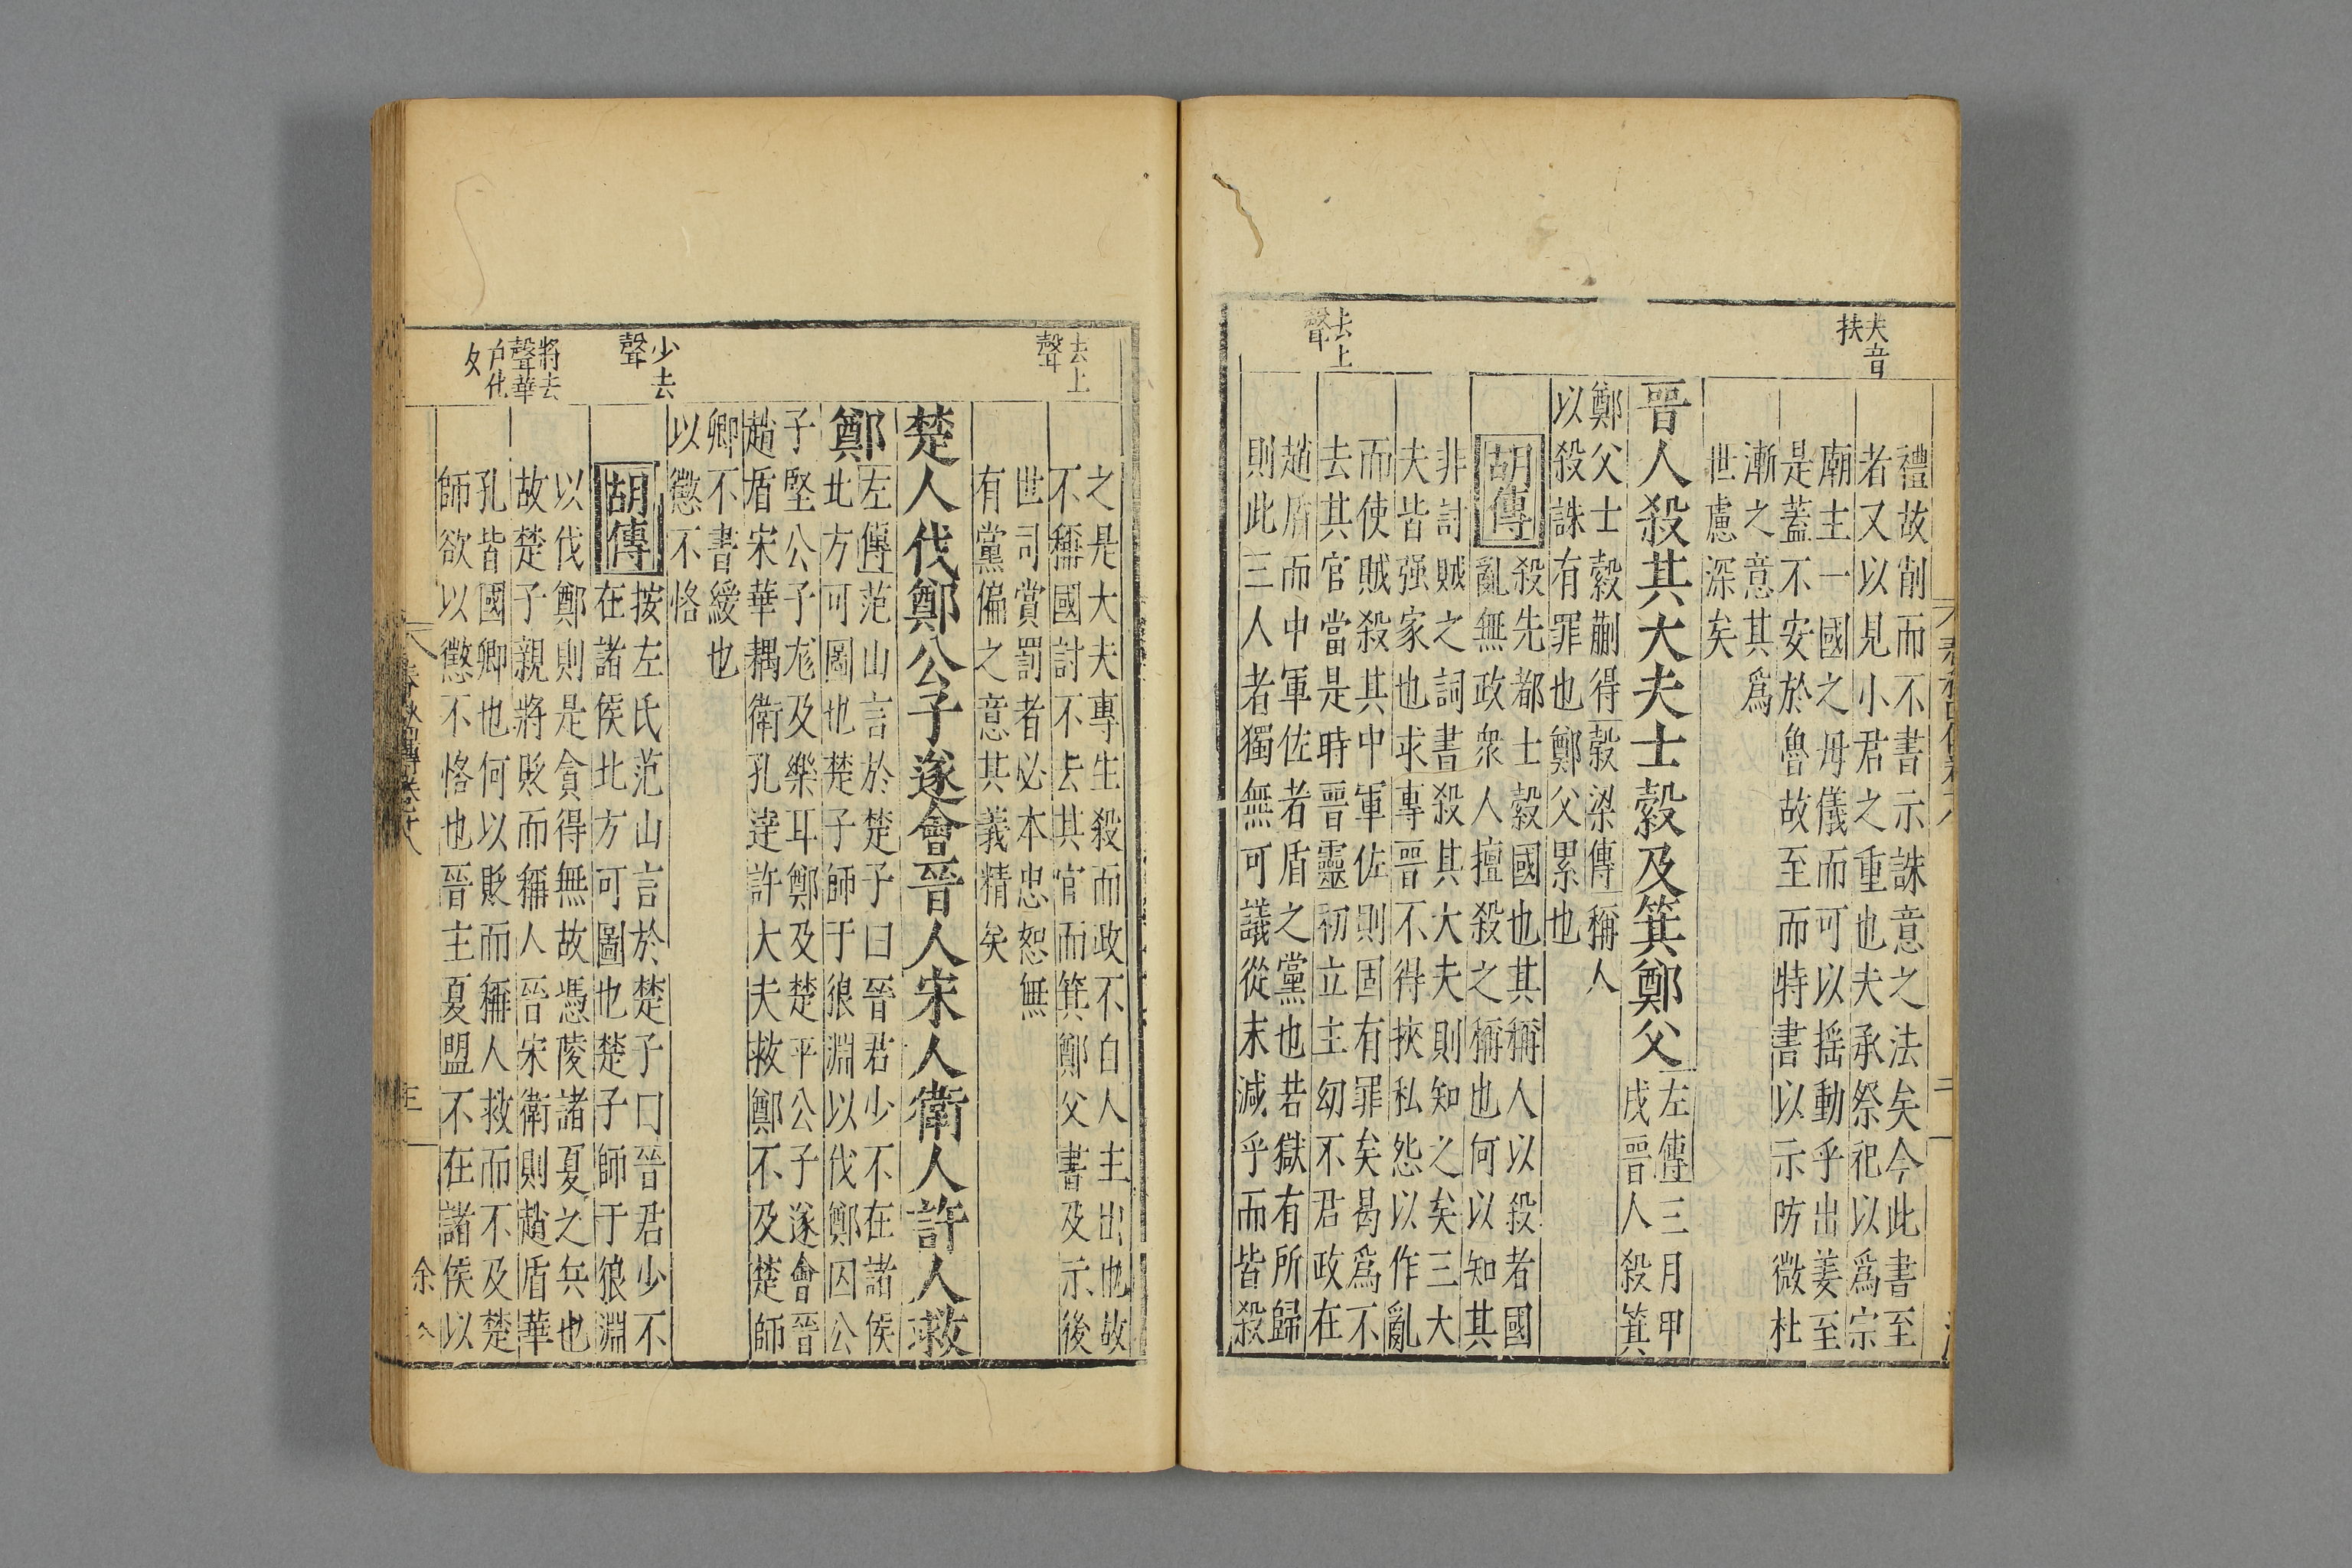 夫音
扶
禮故削而不書示誅意之法矣今此書至
者又以見小君之重也夫承祭祀以爲宗
廟主一國之母儀而可以搖動乎出姜至
是蓋不安於魯故至而特書以示防微杜
漸之意其爲
世慮深矣
晉人殺其大夫士縠及箕鄭父
左傳三月甲
戌晉人殺箕
鄭父士縠蒯得
穀梁傳稱人
以殺誅有罪也鄭父累也
去上
聲
胡傳
殺先都士縠國也其稱人以殺者國
亂無政衆人擅殺之稱也何以知其
非討賊之詞書殺其大夫則知之矣三大
夫皆强家也求專晉不得挾私怨以作亂
而使賊殺其中軍佐則固有罪矣曷爲不
去其官當是時晉靈初立主幼不君政在
趙盾而中軍佐者盾之黨也若獄有所歸
則此三人者獨無可議從末減乎而皆殺
去上
聲
之是大夫專生殺而政不自人主出也故
不稱國討不去其官而箕鄭父書及示後
世司賞罰者必本忠恕無
有黨偏之意其義精矣
楚人伐鄭公子遂會晉人宋人衛人許人救
鄭
少去
聲
左傳范山言於楚子曰晉君少不在諸侯
北方可圖也楚子師于狼淵以伐鄭囚公
子堅公子尨及樂耳鄭及楚平公子遂會晉
趙盾宋華耦衛孔達許大夫救鄭不及楚師
卿不書緩也
以懲不恪
將去
聲華
戶化
夂
胡傳
按左氏范山言於楚子曰晉君少不
在諸侯北方可圖也楚子師于狼淵
以伐鄭則是貪得無故憑陵諸夏之兵也
故楚子親將貶而稱人晉宋衛則趙盾華
孔皆國卿也何以貶而稱人救而不及楚
師欲以懲不恪也晉主夏盟不在諸侯以
三
余